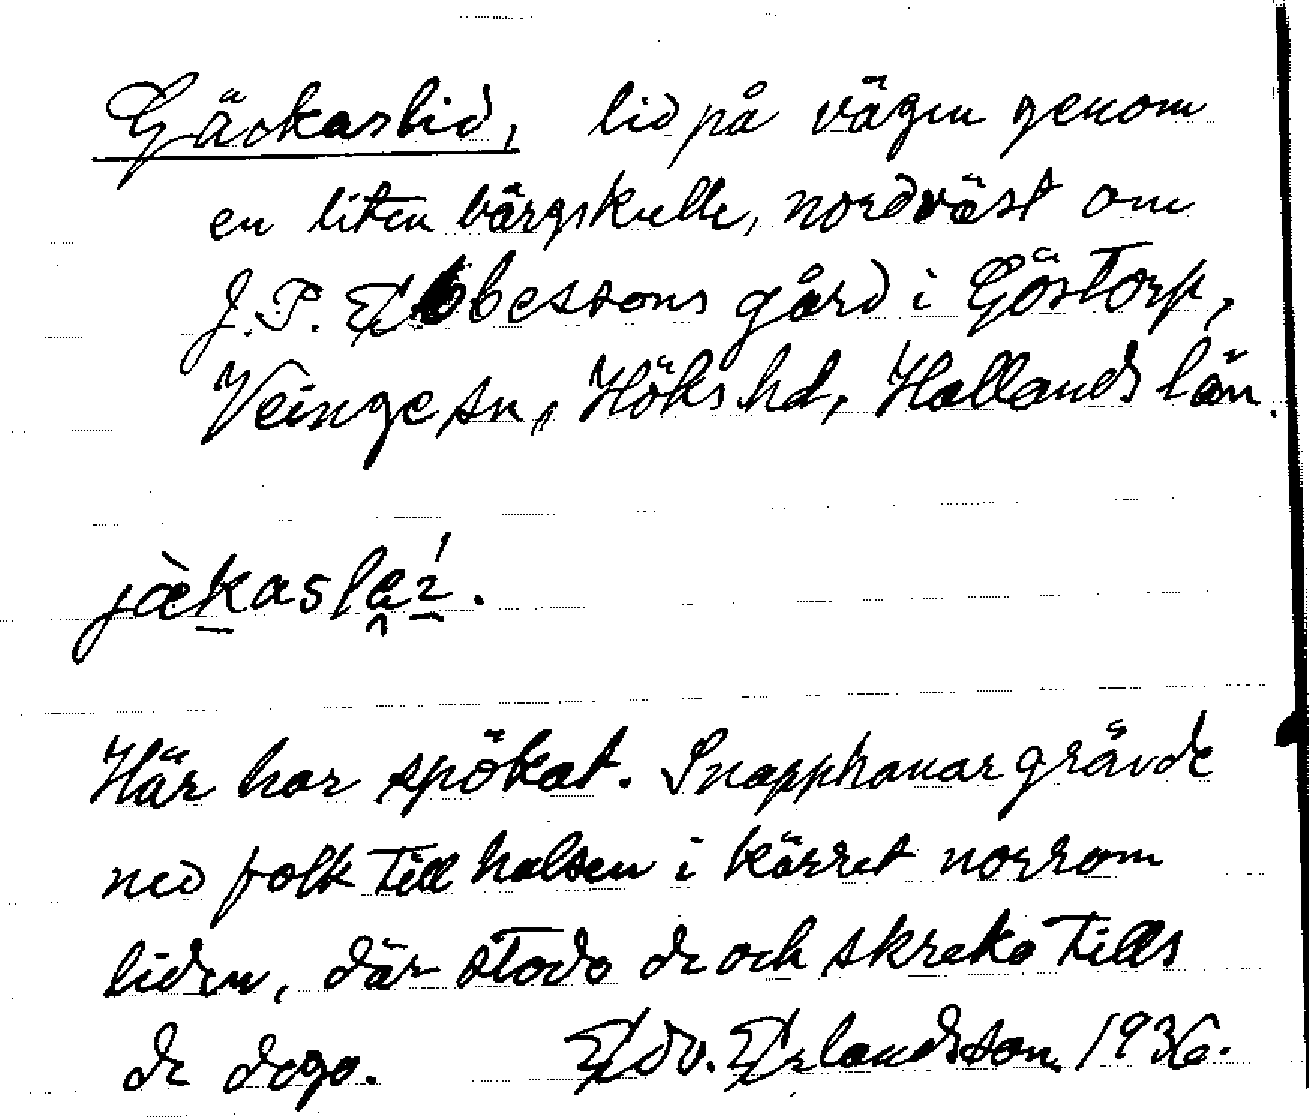 Gäckaslid, lid på vägen genom
en liten bärgskulle, nordväst om
J. P. Ebbessons gård i Göstorp,
Veinge sn, Höks hd, Hallands län.
jàkaslái.
Här har spökat. Snapphanar grävde
ned folk till halsen i kärret norrom
liden, där stodo de och skreko tills
de dogo. Edv. Erlandsson 1936.